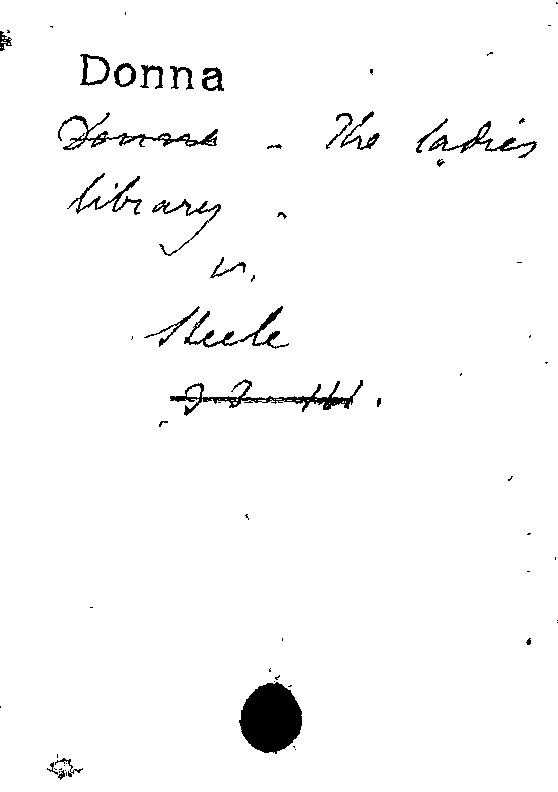 Donna
Donna - The ladies
library.
v.
Steele